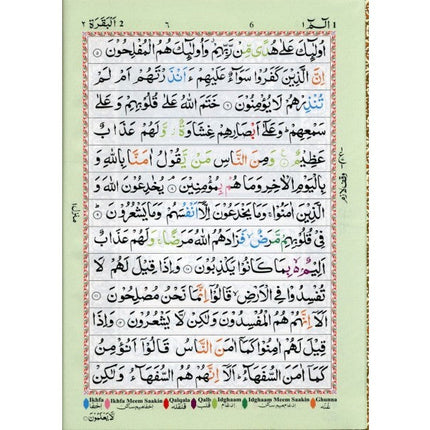 2 اَلْبَقَرَة ٢
٦
6
الٓمّٓ ١ 1
اُولٰٓئِكَ عَلٰى هُدًى مِّنْ رَّبِّهِمْ وَاُولٰٓئِكَ هُمُ الْمُفْلِحُوْنَ ۝
اِنَّ الَّذِيْنَ كَفَرُوْا سَوَآءٌ عَلَيْهِمْ ءَاَنْذَرْتَهُمْ اَمْ لَمْ
تُنْذِرْهُمْ لَا يُؤْمِنُوْنَ ۝ خَتَمَ اللّٰهُ عَلٰى قُلُوْبِهِمْ وَعَلٰى
سَمْعِهِمْ ؕ وَعَلٰٓى اَبْصَارِهِمْ غِشَاوَةٌ ؗ وَّلَهُمْ عَذَابٌ
عَظِيْمٌ ۝ وَمِنَ النَّاسِ مَنْ يَّقُوْلُ اٰمَنَّا بِاللّٰهِ وَ
بِالْيَوْمِ الْاٰخِرِ وَمَا هُمْ بِمُؤْمِنِيْنَ ۝ يُخٰدِعُوْنَ اللّٰهَ وَ
الَّذِيْنَ اٰمَنُوْا ۚ وَمَا يَخْدَعُوْنَ اِلَّآ اَنْفُسَهُمْ وَمَا يَشْعُرُوْنَ ۝
فِيْ قُلُوْبِهِمْ مَّرَضٌ ۙ فَزَادَهُمُ اللّٰهُ مَرَضًا ۚ وَلَهُمْ عَذَابٌ
اَلِيْمٌۢ ۙ بِمَا كَانُوْا يَكْذِبُوْنَ ۝ وَاِذَا قِيْلَ لَهُمْ لَا
تُفْسِدُوْا فِي الْاَرْضِ ۙ قَالُوْٓا اِنَّمَا نَحْنُ مُصْلِحُوْنَ ۝
اَلَآ اِنَّهُمْ هُمُ الْمُفْسِدُوْنَ وَلٰكِنْ لَّا يَشْعُرُوْنَ ۝ وَاِذَا
قِيْلَ لَهُمْ اٰمِنُوْا كَمَآ اٰمَنَ النَّاسُ قَالُوْٓا اَنُؤْمِنُ
كَمَآ اٰمَنَ السُّفَهَآءُ ؕ اَلَآ اِنَّهُمْ هُمُ السُّفَهَآءُ وَلٰكِنْ
Ikhfa Ikhfa Meem Saakin Qalqala Qalb Idghaam Idghaam Meem Saakin Ghunna
لَّا يَعْلَمُوْنَ
وقف لازم